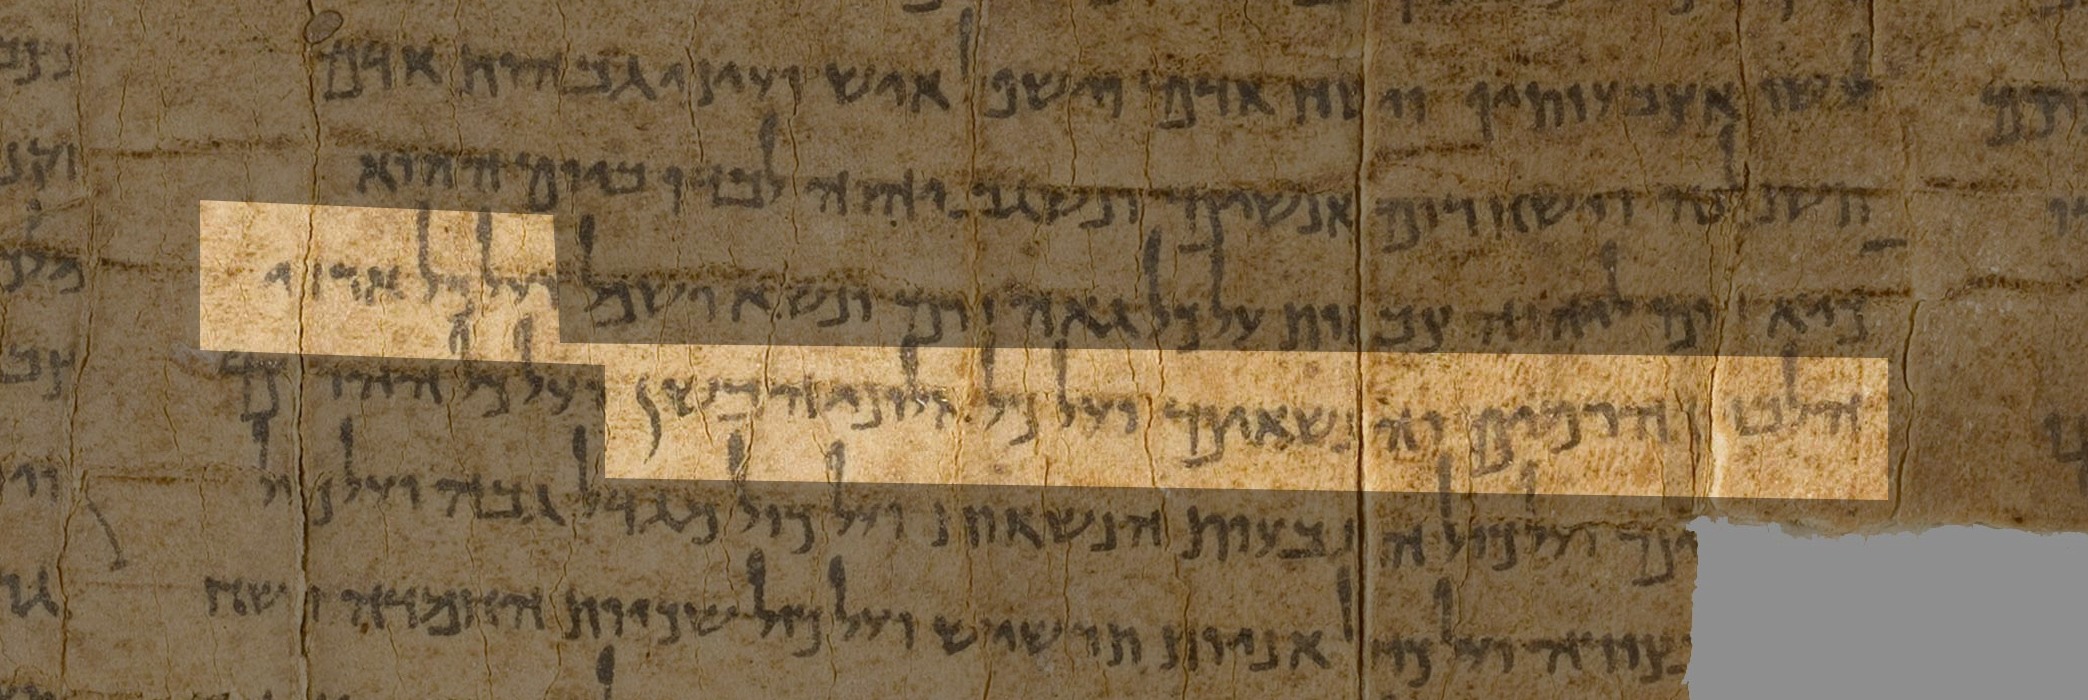 עשו אצבעותיו וישח אדם וישפל איש ועיני גבהות אדם
תשפלנה וישח רום אנשים ונשגב יהוה לבדו ביום ההוא
כיא יום ליהוה צבאות על כל גאה ורם ונשא ושפל ועל כל ארזי
הלבנון הרמים והנשאים ועל כל אלוני הבשן ועל כל ההרים
ועל כול הגבעות הנשאות ועל כול מגדל גבה ועל כול
בצורה ועל כול אניות תרשיש ועל כול שכיות החמדה ושח